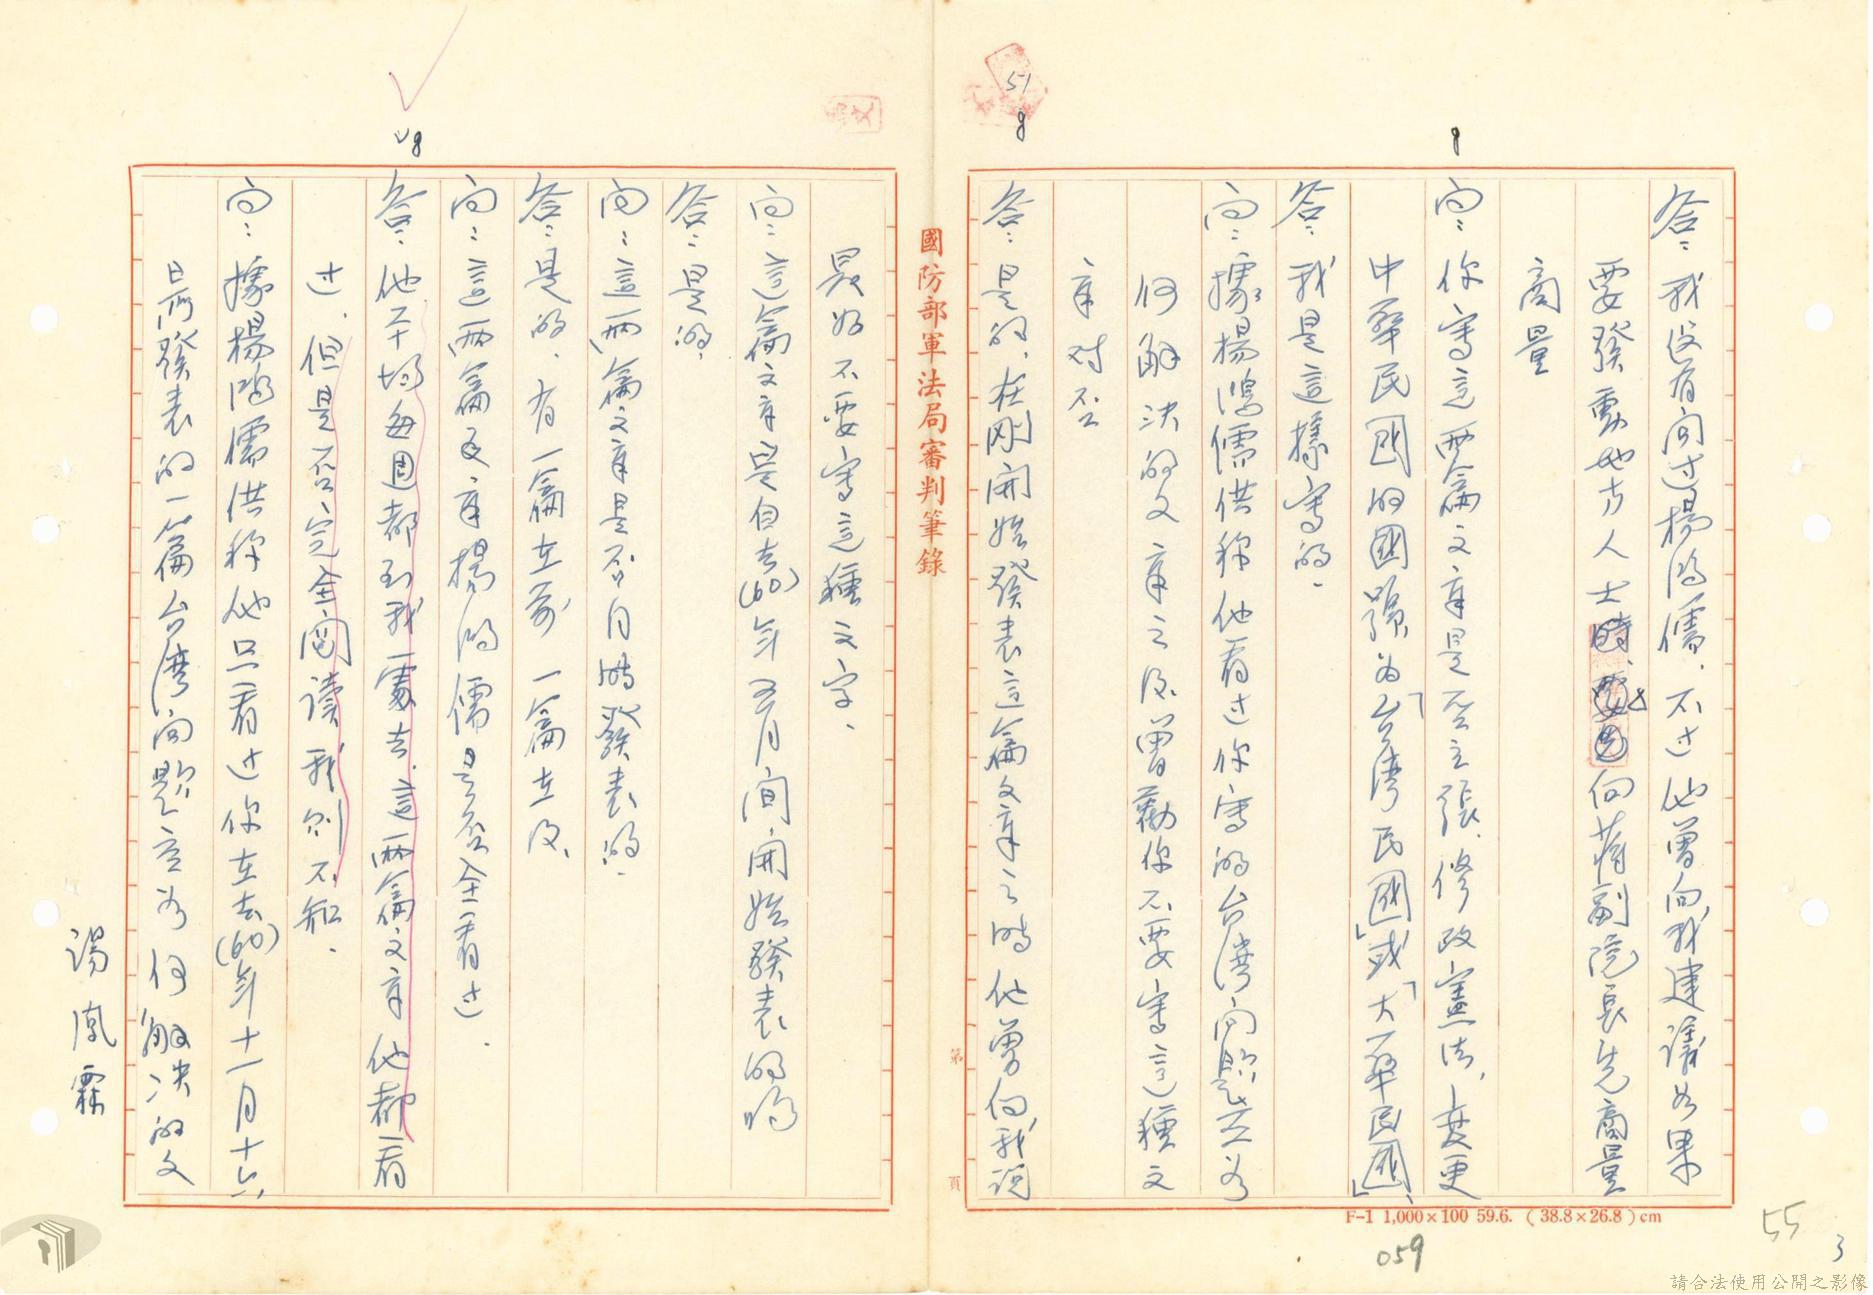 51
答：我沒有問过楊鴻儒，不过他曾向我建議如果
要發動地方人士時，要先向蔣副院長先商量
商量
問：你寫這兩篇文章是否主張，修改憲法，變更
中華民國的國號為「台湾民國」或「大華民國」、
答：我是這樣寫的、
問：據楊鴻儒供称他看过你寫的台湾问題应如
何解決的文章之後曾勸你不要寫這種文
章对否
答：是的，在剛開始發表這篇文章之時他曾向我說
國防部軍法局審判筆錄
第 頁
最好不要寫這種文字、
問：這篇文章是自去(60)年五月間開始發表的嗎
答：是的，
問：這兩篇文章是否同時發表的、
答：是的，有一篇在前 一篇在後、
問：這兩篇文章楊鴻儒是否全看过、
答：他平均每週都到我處去，這兩篇文章他都看
过，但是否完全閱讀我則不知、
問：據楊鴻儒供称他只看过你在去(60)年十一月十六
日所發表的一篇台湾问題应如何解决的文
湯鳳霖
F-1 1,000×100 59.6. (38.8×26.8) cm
059
55
3
請合法使用公開之影像